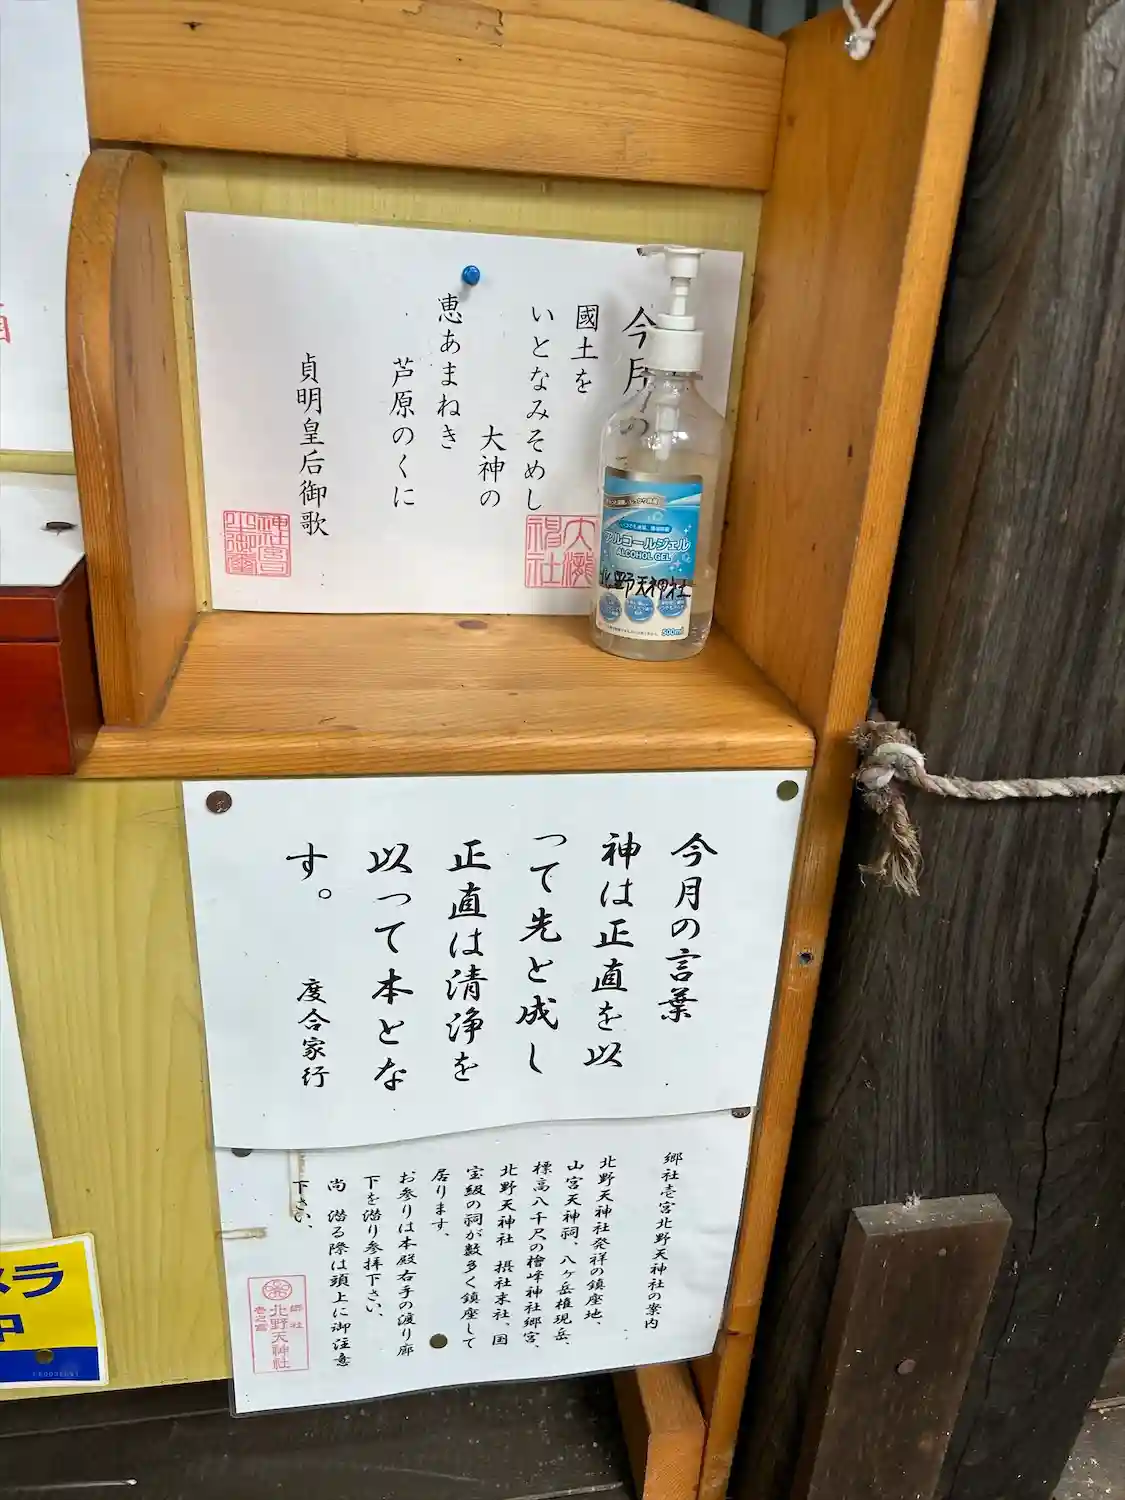 今月の
國土を
いとなみそめし
大神の
恵あまねき
芦原のくに
貞明皇后御歌
アルコールジェル
ALCOHOL GEL
北野天神社
500ml
今月の言葉
神は正直を以
って先と成し
正直は清浄を
以って本とな
す。
度合家行
郷社壱宮北野天神社の案内
北野天神社発祥の鎮座地、
山宮天神祠、八ヶ岳権現岳、
標高八千尺の檜峰神社郷宮、
北野天神社 摂社末社、国
宝級の祠が数多く鎮座して
居ります、
お参りは本殿右手の渡り廊
下を潜り参拝下さい、
尚 潜る際は頭上に御注意
下さい、
郷社
壱之宮
北野天神社
メラ
中